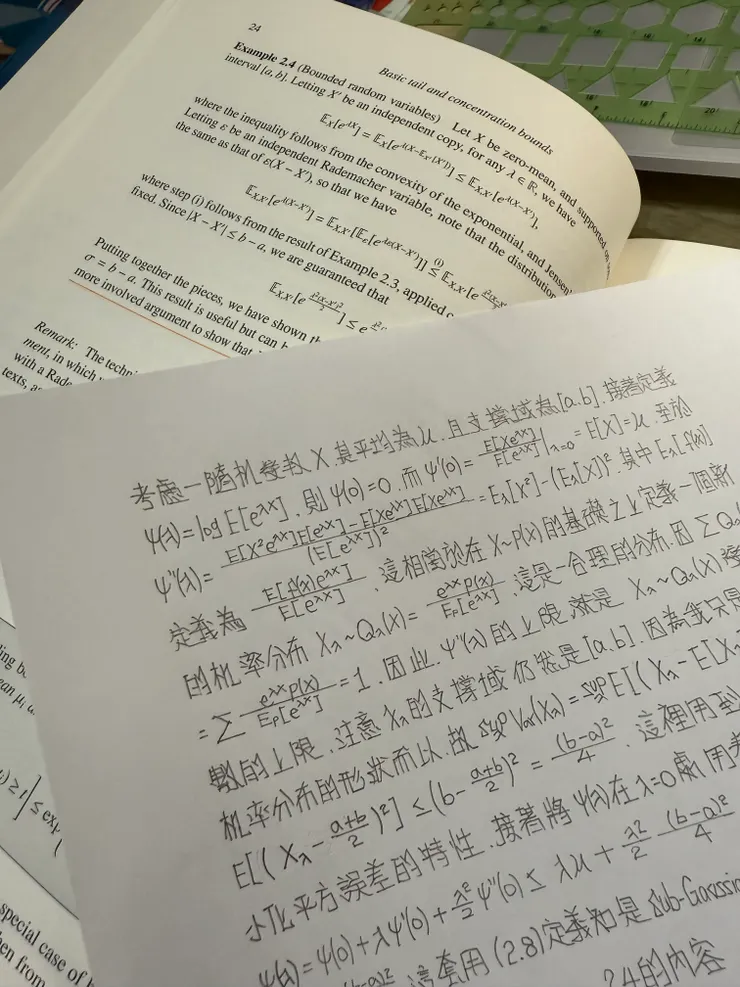 24
Basic tail and concentration bounds
Example 2.4 (Bounded random variables) Let X be zero-mean, and supported on
interval [a, b]. Letting X′ be an independent copy, for any λ ∈ ℝ, we have
𝔼_X[e^{λX}] = 𝔼_X[e^{λ(X−𝔼_{X′}[X′])}] ≤ 𝔼_{X,X′}[e^{λ(X−X′)}],
where the inequality follows from the convexity of the exponential, and Jensen
Letting ε be an independent Rademacher variable, note that the distribution
the same as that of ε(X − X′), so that we have
𝔼_{X,X′}[e^{λ(X−X′)}] = 𝔼_{X,X′}[𝔼_ε[e^{λε(X−X′)}]] ≤^{(i)} 𝔼_{X,X′}[e
where step (i) follows from the result of Example 2.3, applied
fixed. Since |X − X′| ≤ b − a, we are guaranteed that
𝔼_{X,X′}[e^{λ²(X−X′)²/2}] ≤ e
Putting together the pieces, we have shown
σ = b − a. This result is useful but can
more involved argument to show that
Remark: The
ment, in which
with a
texts,
考慮一隨機變數 X 其平均為 μ. 且支撐域為 [a,b]. 接著定義
ψ(λ) = log E[e^{λX}]. 則 ψ(0)=0. 而 ψ'(0) = E[Xe^{λX}]/E[e^{λX}]|_{λ=0} = E[X] = μ. 至於
ψ''(λ) = (E[X²e^{λX}]E[e^{λX}] − E[Xe^{λX}]E[Xe^{λX}])/(E[e^{λX}])² = E_λ[X²] − (E_λ[X])². 其中 E_λ[f(X)]
定義為 E[f(X)e^{λX}]/E[e^{λX}]. 這相當於在 X~P(x) 的基礎之上定義一個新
的机率分布 X_λ ~ Q_λ(x) = e^{λx}P(x)/E_P[e^{λX}]. 這是一合理的分布. 因 Σ Q
= Σ e^{λx}P(x)/E_P[e^{λX}] = 1. 因此. ψ''(λ) 的上限. 就是 X_λ ~ Q_λ(x)
數的上限. 注意 X_λ 的支撐域仍然是 [a,b]. 因為我只是
机率分布的形狀而以. 故 sup Var(X_λ) = sup E[(X_λ − E[X
E[(X_λ − (a+b)/2)²] ≤ (b − (a+b)/2)² = (b−a)²/4. 這裡用到
小化平方誤差的特性. 接著將 ψ(λ) 在 λ=0 處用
ψ(λ) = ψ(0) + λψ'(0) + λ²/2 ψ''(0) ≤ λμ + λ²/2 (b−a)²/4
這套用 (2.8) 定義知是 sub-Gaussia
2.4 的內容
ing
ean μ_i,
≥ t] ≤ exp
special case of
en from